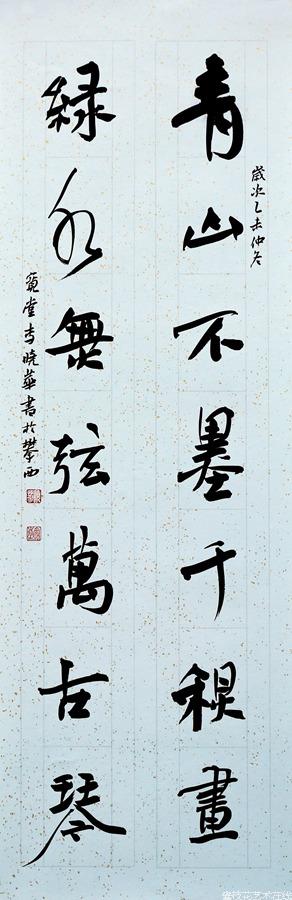 歲次乙未仲冬
青山不墨千秋畫
綠水無弦萬古琴
堂李曉華書於攀西
攀枝花艺术在线